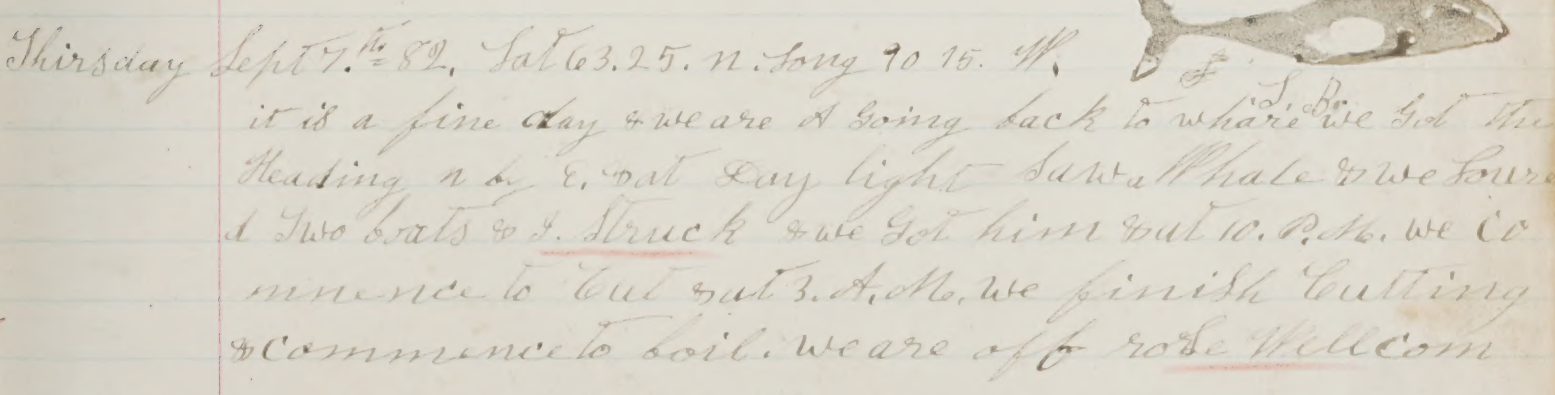 Thirsday Sept 7.th 82. Lat 63.25. n. Long 90 15. W.
S. B.
it is a fine day & we are A Going back to whare we Got the
Heading n by E. & at Day light Saw a Whale & we Lowre
d Two boats & I. Struck & we Got him & at 10. P.M. we co
mnence to Cut & at 3. A.M. we finish Cutting
& commence to boil. we are off rose Wellcom